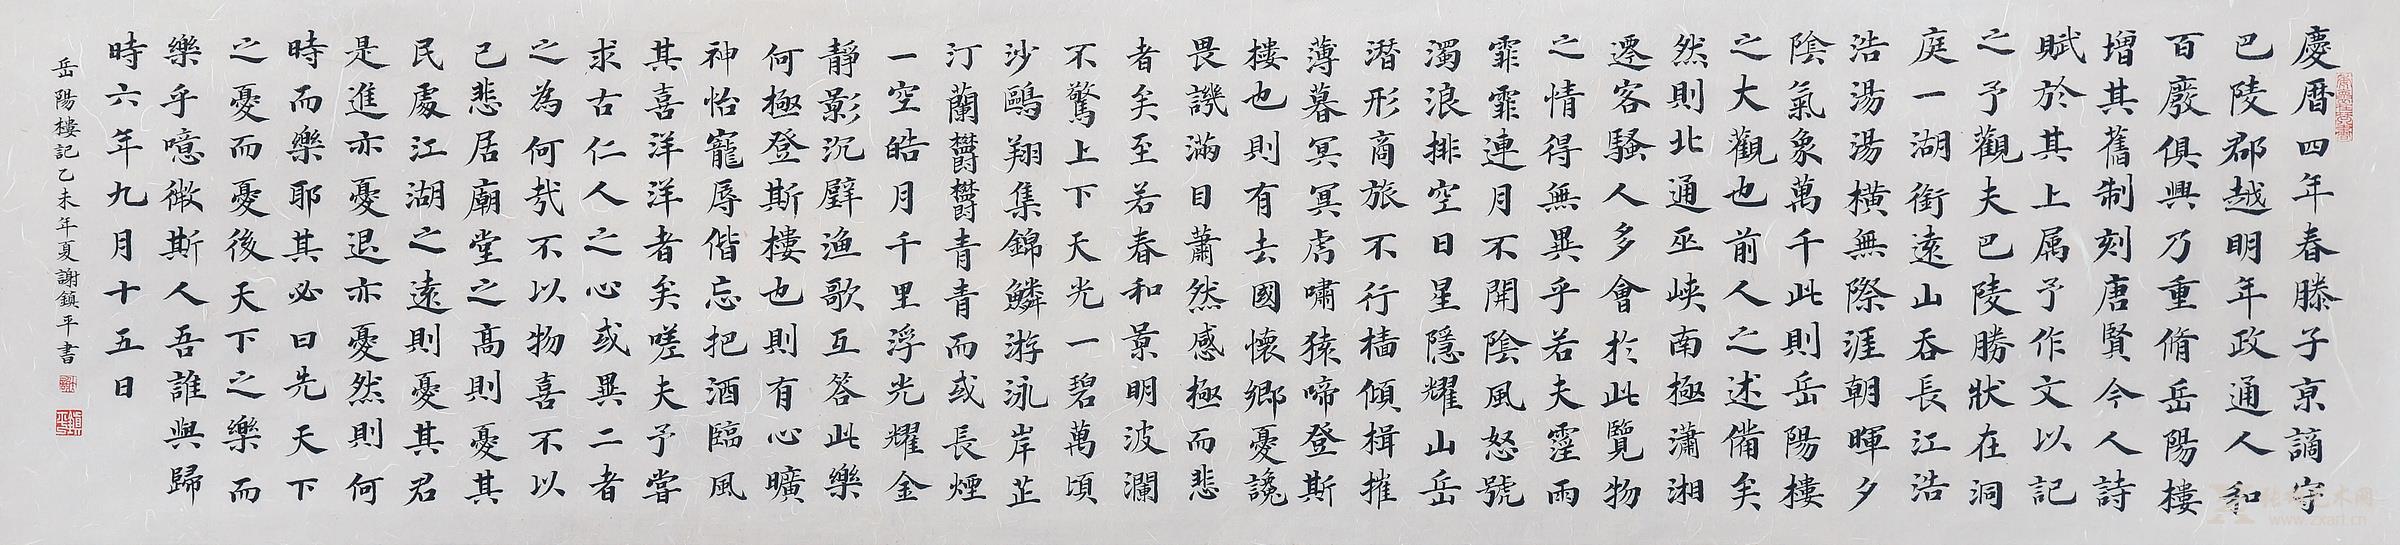 慶暦四年春滕子京謫守
巴陵郡越明年政通人和
百廢俱興乃重脩岳陽樓
增其舊制刻唐賢今人詩
賦於其上属予作文以記
之予觀夫巴陵勝狀在洞
庭一湖銜遠山吞長江浩
浩湯湯橫無際涯朝暉夕
陰氣象萬千此則岳陽樓
之大觀也前人之述備矣
然則北通巫峽南極瀟湘
遷客騷人多會於此覽物
之情得無異乎若夫霪雨
霏霏連月不開陰風怒號
濁浪排空日星隱耀山岳
潛形商旅不行檣傾楫摧
薄暮冥冥虎嘯猿啼登斯
樓也則有去國懷鄉憂讒
畏譏滿目蕭然感極而悲
者矣至若春和景明波瀾
不驚上下天光一碧萬頃
沙鷗翔集錦鱗游泳岸芷
汀蘭欝欝青青而或長煙
一空皓月千里浮光耀金
靜影沉璧渔歌互答此樂
何極登斯樓也則有心曠
神怡寵辱偕忘把酒臨風
其喜洋洋者矣嗟夫予嘗
求古仁人之心或異二者
之為何哉不以物喜不以
己悲居廟堂之高則憂其
民處江湖之遠則憂其君
是進亦憂退亦憂然則何
時而樂耶其必曰先天下
之憂而憂後天下之樂而
樂乎噫微斯人吾誰與歸
時六年九月十五日
岳陽樓記乙未年夏謝鎮平書
www.zxart.cn